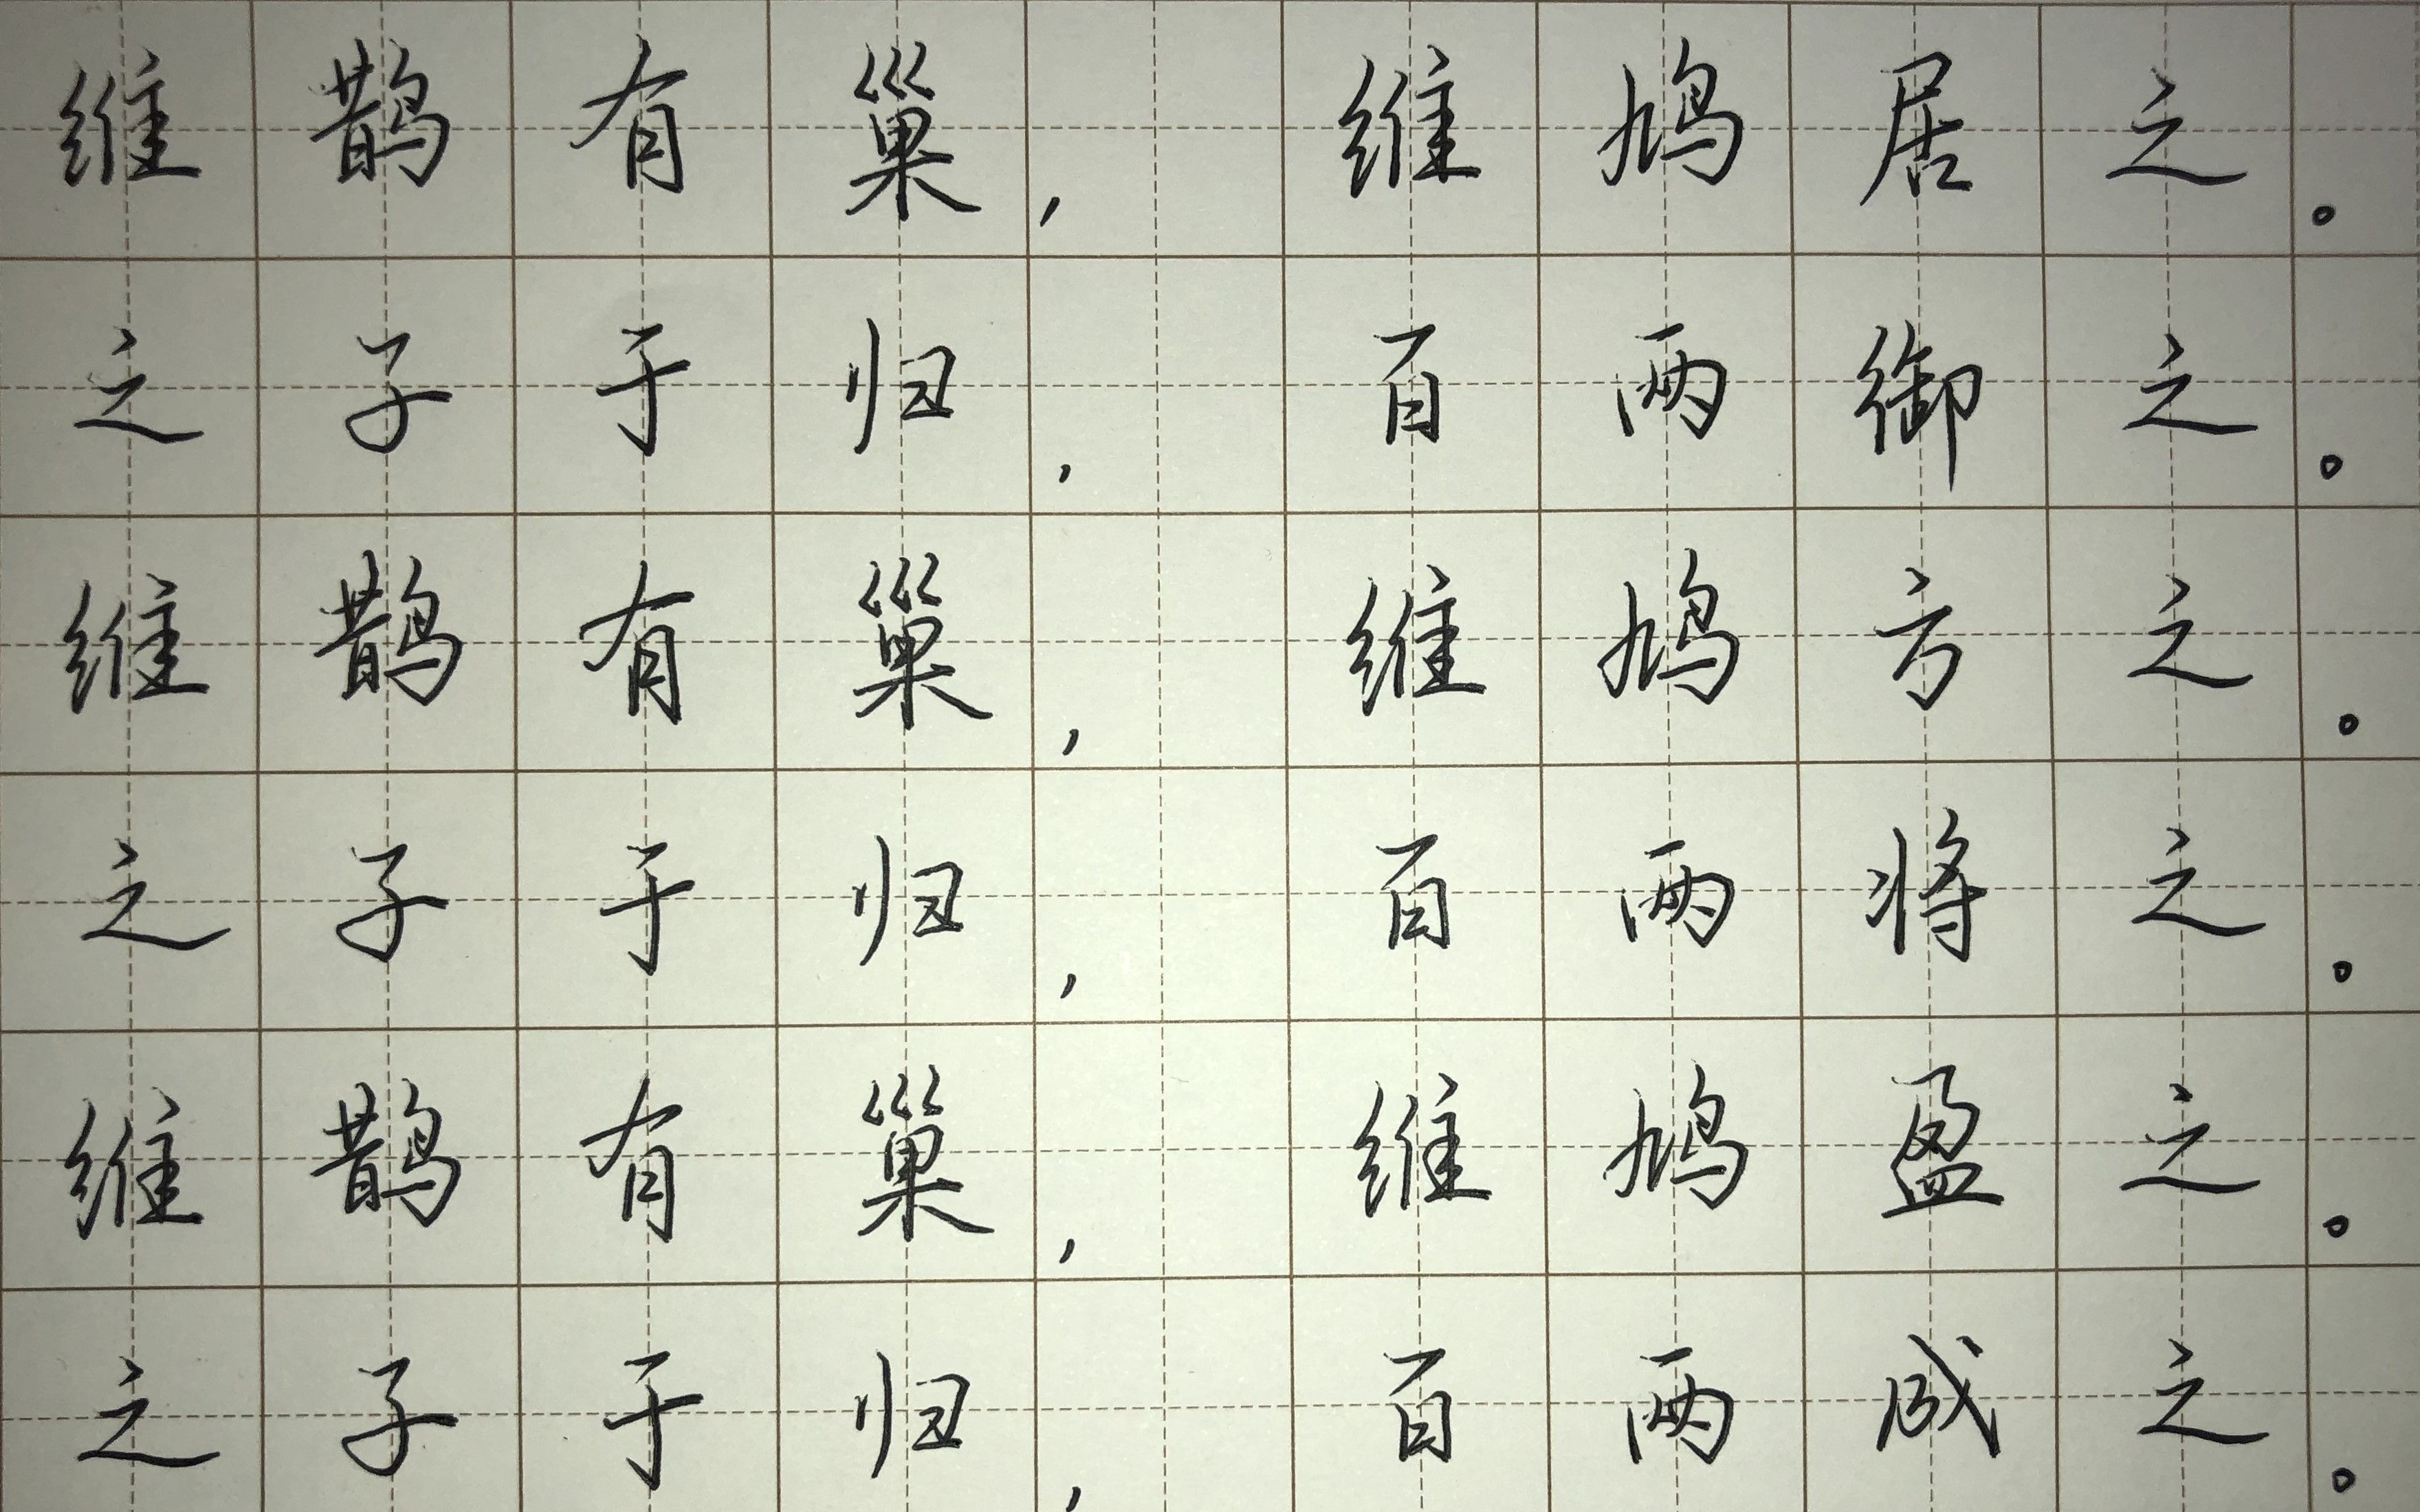 维鹊有巢,维鸠居之。
之子于归,百两御之。
维鹊有巢,维鸠方之。
之子于归,百两将之。
维鹊有巢,维鸠盈之。
之子于归,百两成之。